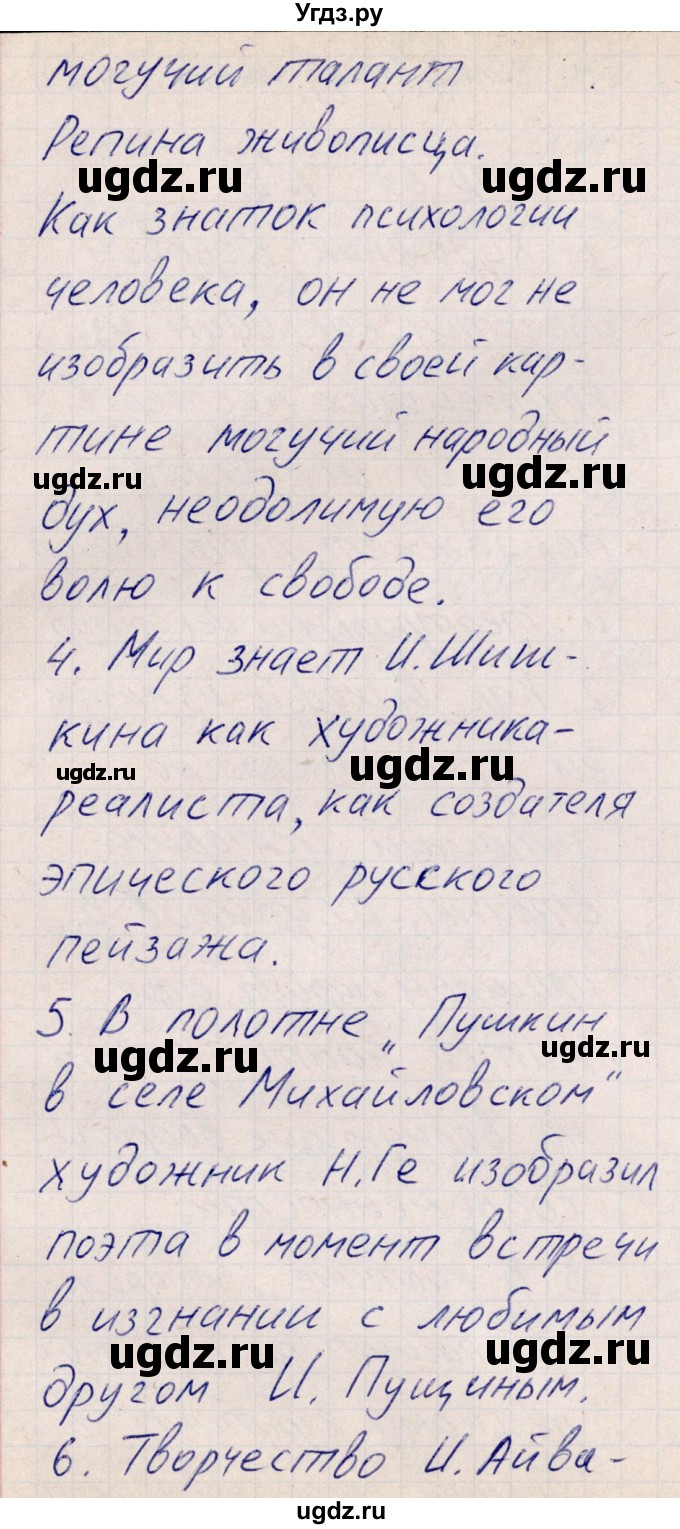 Угдз.ру
могучий талант
Репина живописца.
ugdz.ru ugdz.ru
Как знаток психологии
человека, он не мог не
изобразить в своей кар-
тине могучий народный
ugdz.ru ugdz.ru
дух, неодолимую его
волю к свободе.
4. Мир знает И. Шиш-
кина как художника-
ugdz.ru ugdz.ru
реалиста, как создателя
эпического русского
пейзажа.
5. В полотне „Пушкин
ugdz.ru ugdz.ru
в селе Михайловском"
художник Н. Ге изобразил
поэта в момент встречи
в изгнании с любимым
ugdz.ru ugdz.ru
другом И. Пущиным.
6. Творчество И. Айва-
ugdz.ru